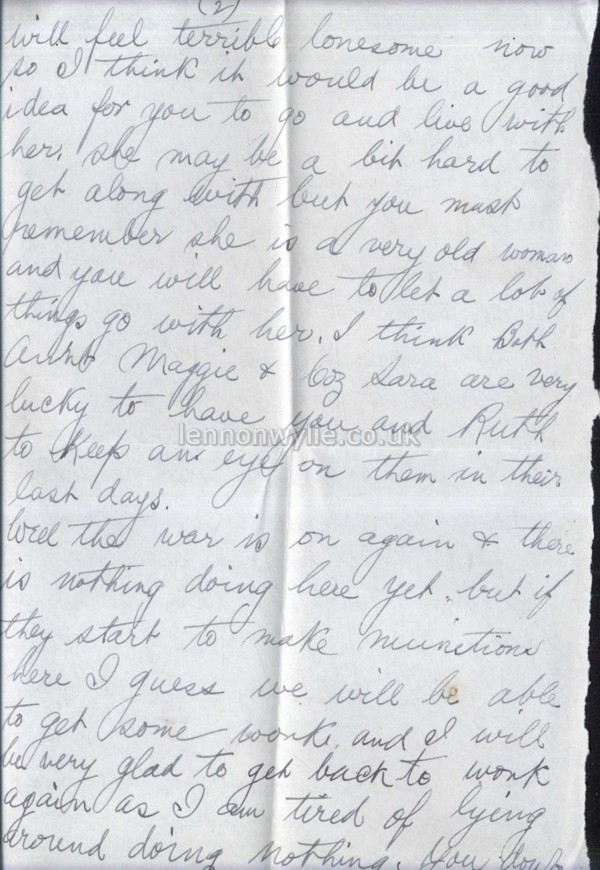 (2)
will feel terrible lonesome now
so I think it would be a good
idea for you to go and live with
her. she may be a bit hard to
get along with but you must
remember she is a very old woman
and you will have to let a lot of
things go with her. I think Both
Aunt Maggie & Coz Sara are very
lucky to have you and Ruth
lennonwylie.co.uk
to keep an eye on them in their
last days.
Well the war is on again & there
is nothing doing here yet. but if
they start to make munitions
here I guess we will be able
to get some work. and I will
be very glad to get back to work
again as I am tired of lying
around doing nothing. You dont